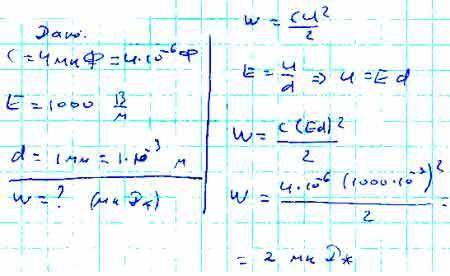 Дано.
C = 4 мк Ф = 4·10⁻⁶ Ф
E = 1000 В/м
d = 1 мм = 1·10⁻³ м
W = ? (мк Дж)
W = CU²/2
E = U/d ⇒ U = Ed
W = C(Ed)²/2
W = 4·10⁻⁶ (1000·10⁻³)²/2 =
= 2 мк Дж